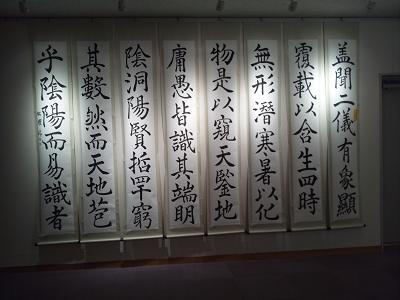 盖聞二儀有象顯
覆載以含生四時
無形潛寒暑以化
物是以窺天鑒地
庸愚皆識其端明
陰洞陽賢哲罕窮
其數然而天地苞
乎陰陽而易識者